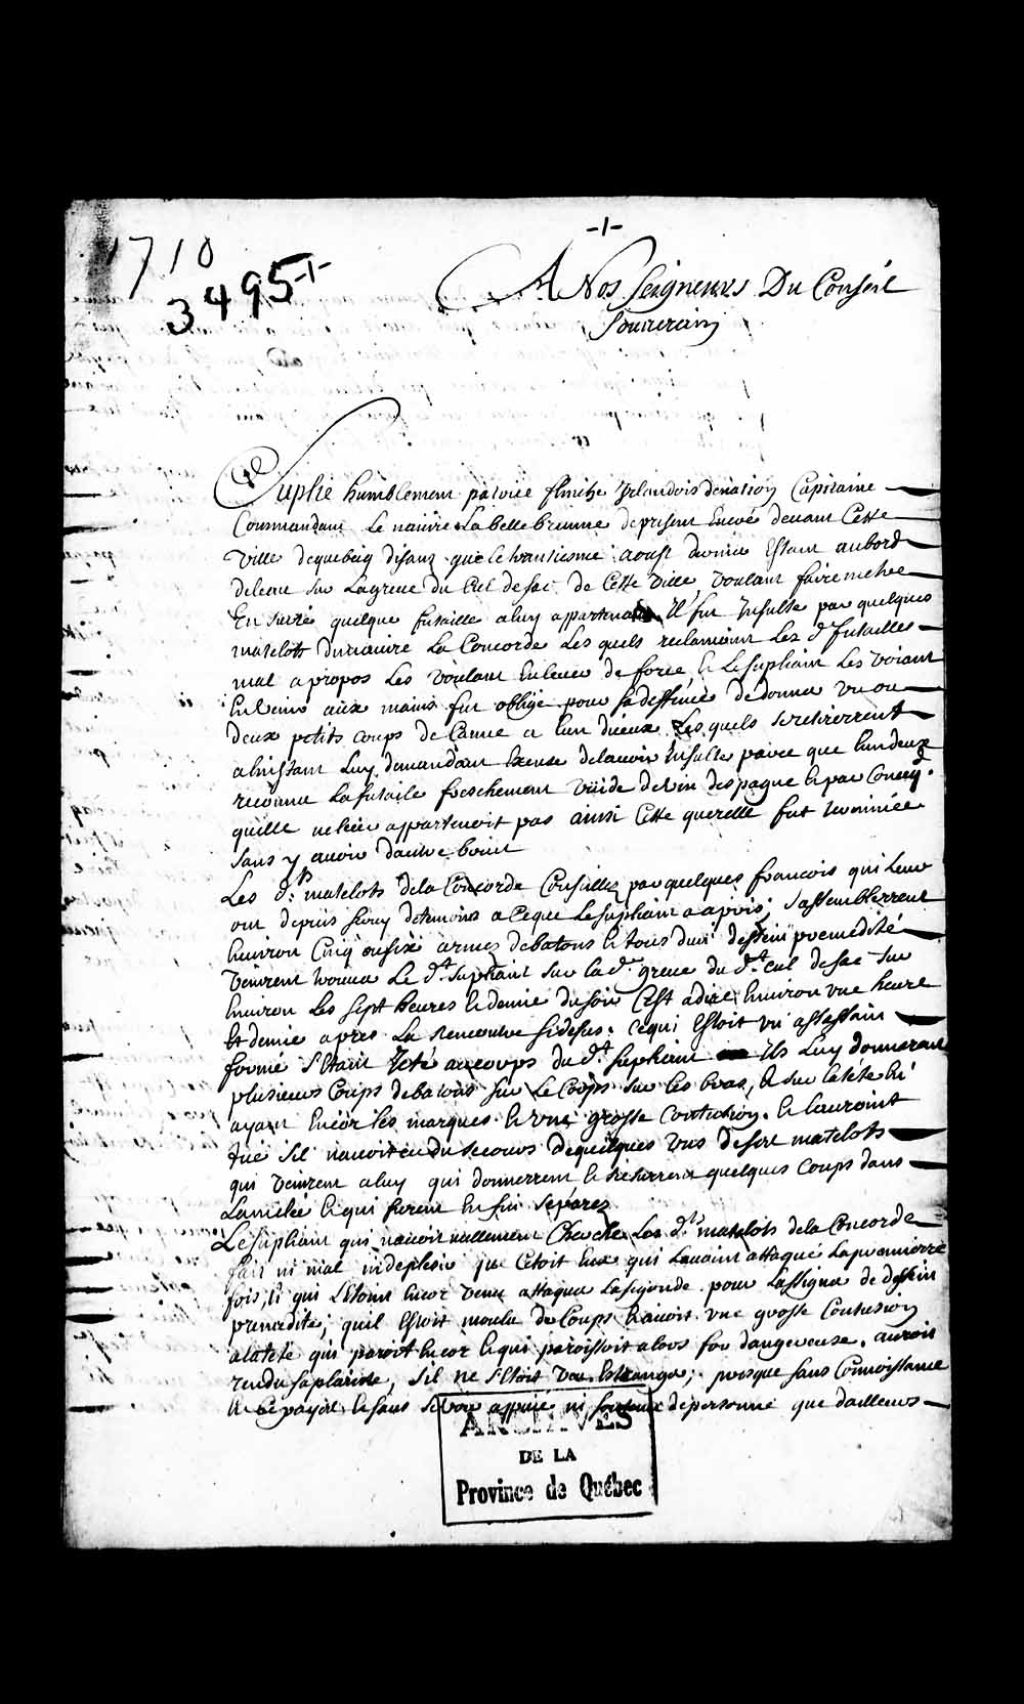 -1-
1710
3495-1-
A Nos Seigneurs Du Conseil
Souverain
Suplie humblement patrice Yrlandois de nation Capitaine
Commandant le navire La belle brunne de present devant Cette
Ville de quebecq disant que le trantiesme aoust dernier Estant au bord
de leau sur La greve du Cul de sac de Cette Ville voulant faire mettre
En quelque futaille a luy appartenant Il fut Insulté par quelques
matelots du navire La Concorde Les quels reclamoient Les d. futailles
mal a propos Les voulant Enlever de force, et Le supliant Les voiant
En venir aux mains fut obligé pour sa deffence de donner un ou
deux petits coups de Canne a lun dieux Les quels se retirerrent
a linstant Luy demandant Excuse de lavoir Insulté parce que lun deux
reconnu La futaile freschement vuide de vin despagne et par Conseq.
quelle ne leur appartenoit pas ainsi Cette querelle fut terminée
sans y avoir dautre bruit
Les d. ts matelots de la Concorde Conseillez par quelques francois qui Leur
ont depuis servy de temoins a Ceque Le supliant a apris, sassemblerrent
Environ Cinq ou six armez de batons et tous dun dessein premedité
vinrent trouver Le d.t supliant sur la d. greve du d.t cul de sac sur
Environ Les sept heures et demie du soir Cest a dire Environ une heure
Et demie apres La rencontre sidesus. Cequi Estoit un assassain
formé sEtant Jeté au corps du d.t supliant Ils Luy donnerent
plusieurs Coups de batons sur Le Corps sur les bras, et sur la tete En
ayant Encor les marques et une grosse Contusion. et Lauroint
tué sil navoit eu du secours de quelques uns de ses matelots
qui vinrent a luy qui donnerrent et recurrent quelques coups dans
La melée et qui furent En fin separez
Le supliant qui navoit nullement Cherché Les d.ts matelots de la Concorde
fait ni mal ni deplesir que Cetoit Eux qui Lavoint attaqué La premierre
fois, et qui Estoint Encor venu attaquer La segonde pour Lassigner de dessein
premedité, quil Estoit moulu de Coups et avoit une grosse Contusion
a la tete qui paroit Encor et qui paroissoit alors fort dangereuse. auroit
rendu sa plainte, sil ne sEtoit vu Estranger, presque sans Connoissance
de Ce payis et sans se voir appuié ni soutenu de personne que dailleurs
ARCHIVES
DE LA
Province de Québec